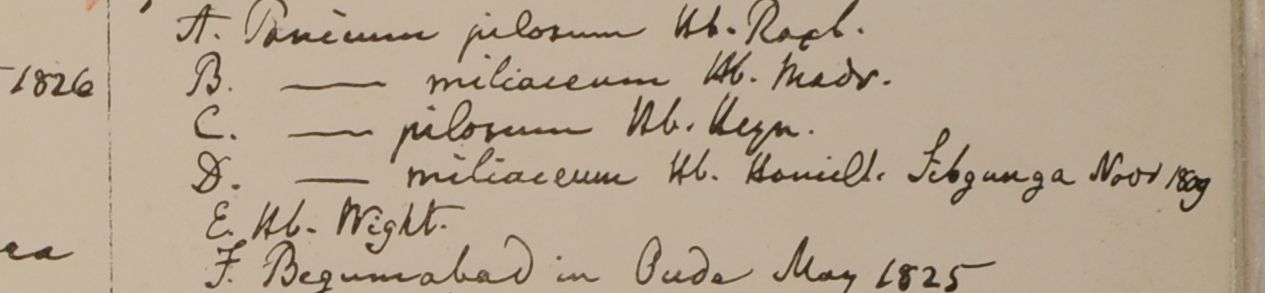 A. Panicum pilosum Hb. Roxb.
1826 B. —— miliaceum Hb. Madr.
C. —— pilosum Hb. Heyn.
D. —— miliaceum Hb. Hamilt. Sibgunga Novr 1809
E. Hb. Wight.
ea F. Begumabad in Oude May 1825